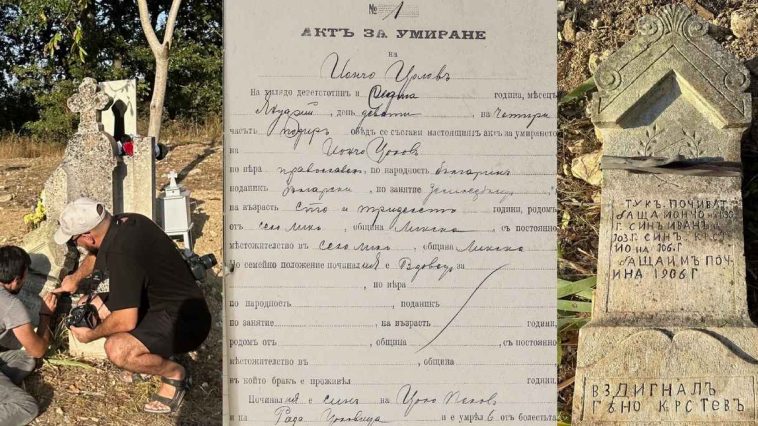 № 1
АКТЪ ЗА УМИРАНЕ
на
Йончо Цоловъ
На хилядо деветстотин и седма година, мѣсецъ
Януарий, день девети, на четири
часътъ подиръ обѣдъ се състави настоящиятъ актъ за умирането
на Йончо Цоловъ
по вѣра православен, по народность българинъ
поданикъ български, по занятие Земледѣлецъ,
на възрасть сто и тридесеть години, родомъ
отъ село, община, съ постоянно
мѣстожителство въ село, община
По семейно положение починалия е вдовецъ за
, по вѣра
по народность, поданикъ
по занятие, на възрасть години,
родомъ отъ, община, съ постоянно
мѣстожителство въ, община
въ който бракъ е проживѣлъ години.
Починалия е синъ на Цоло
и на Рада и е умрѣлъ отъ болестьта
ТУКЪ ПОЧИВАТ
ТАЩА ЙОНЧО НА 130
Г СИНЪ ИВАНЪ
103 Г СИНЪ
НА 106 Г
ТАЩА ИМЪ ПОЧ
ИНА 1906 Г
ВЗДИГНАЛЪ
ГѢНО КРСТЕВЪ